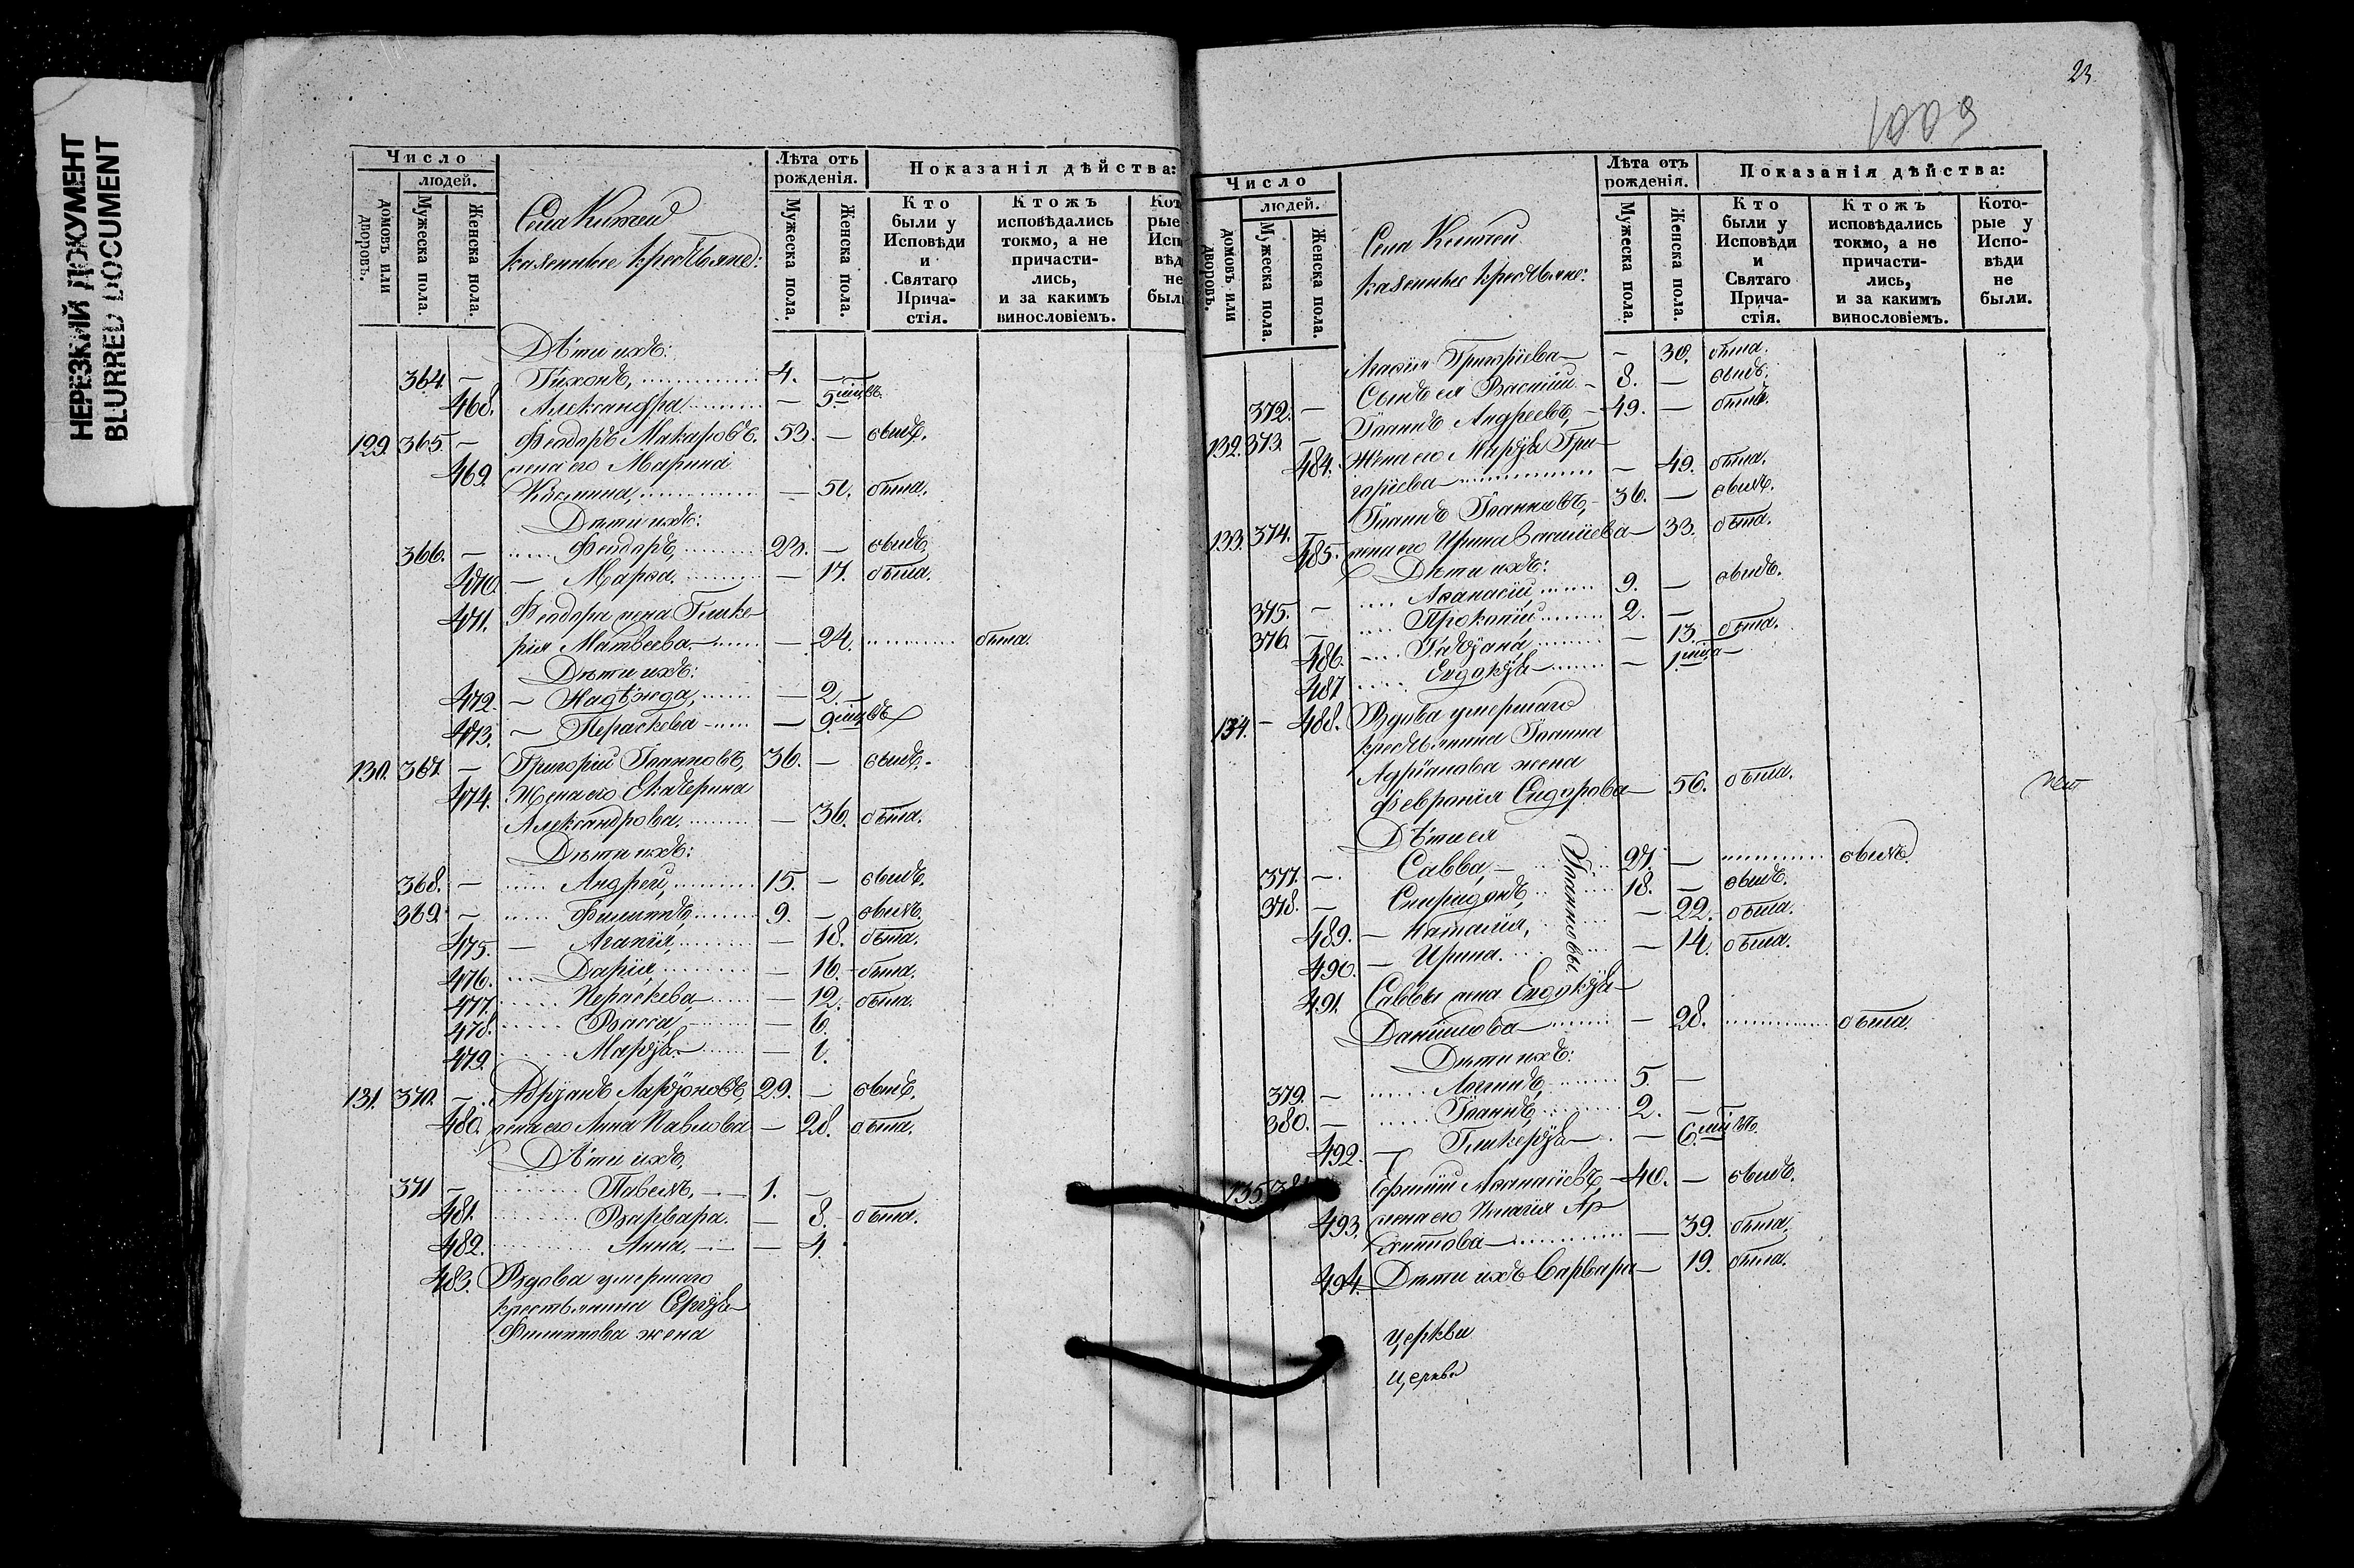 НЕРЕЗКИЙ ДОКУМЕНТ
BLURRED DOCUMENT
Число
людей.
домовъ или дворовъ.
Мужеска пола.
Женска пола.
Села
казенные крестьяне:
Лѣта отъ рожденія.
Мужеска пола.
Женска пола.
Показанія дѣйства:
Кто были у Исповѣди и Святаго Причастія.
Ктожъ исповѣдались токмо, а не причастились, и за какимъ винословіемъ.
Кот
рые
Исп
вѣд
не
был
Дѣти ихъ:
364. — Тихонъ, 4. —
468. Александра — 5 мцвъ.
129. 365. — Ѳеодоръ Макаровъ. 53. — былъ.
469. жена его Марина
Козмина, — 51. была.
Дѣти ихъ:
366. — Ѳеодоръ, 23. — былъ.
470. — Марѳа. — 17. была.
471. Ѳеодора жена Глике-
рія Матвеева — 24. была.
Дѣти ихъ:
472. — Надѣжда, — 2.
473. — Параскева — 9 мцвъ
130. 367. — Григорій Іоанновъ, 36. — былъ.
474. Жена его Екатерина
Александрова. — 36. была.
Дѣти ихъ:
368. — Андрей, 15. — былъ.
369. — Филиппъ, 9. — былъ.
475. — Агапія, — 18. была.
476. Дарія, — 16. была.
477. Параскева, — 12. была.
478. Васса, — 6.
479. Марѳа — 1.
131. 370. — Ларіоновъ, 29. — былъ.
480. жена его Анна Павлова — 28. была.
Дѣти ихъ,
371 — Павелъ. — 1. —
481. Варвара. — 8. была.
482. Анна. — 4.
483. Вдова умершаго
крестьянина Сергія
Филиппова жена
23
1009
Число
людей.
домовъ или дворовъ.
Мужеска пола.
Женска пола.
Села
казенные крестьяне:
Лѣта отъ рожденія.
Мужеска пола.
Женска пола.
Показанія дѣйства:
Кто были у Исповѣди и Святаго Причастія.
Ктожъ исповѣдались токмо, а не причастились, и за какимъ винословіемъ.
Которые у Исповѣди не были.
Григоріева — 30. была.
372. — Сынъ ея Василій — 8. — былъ.
132. 373. — Іоаннъ Андреевъ, — 49. — былъ.
484. Жена его Марѳа Гри-
горіева — 49. была.
133. 374. — Іоаннъ Іоанновъ, 36. — былъ.
485. жена его Ирина Василіева — 33. была.
Дѣти ихъ:
375. — Аѳанасій, 9. — былъ.
376. — Прокопій 2. —
486. Татіана, — 13. была.
487. Евдокія — 1 мца
134. — 488. Вдова умершаго
крестьянина Іоанна
Адріанова жена
Февронія Сидорова — 56. была.
Дѣти ея
377. — Савва, 27. — былъ.
378. — Спиридонъ 18. — былъ.
489. — Наталія, — 22. была.
490. — Ирина. — 14. была.
Іоанновы.
491. Саввы жена Евдокія
Даніилова — 28. была.
Дѣти ихъ:
379. — Логинъ, 5. —
380. — Іоаннъ, 2. —
492. — Гликерія — 6 мцвъ.
135. 381. Аѳанасіевъ, — 40. — былъ.
493. жена его Ар-
хиппова — 39. была,
494. Дѣти ихъ Варвара — 19. была.
Церкви
Церкви